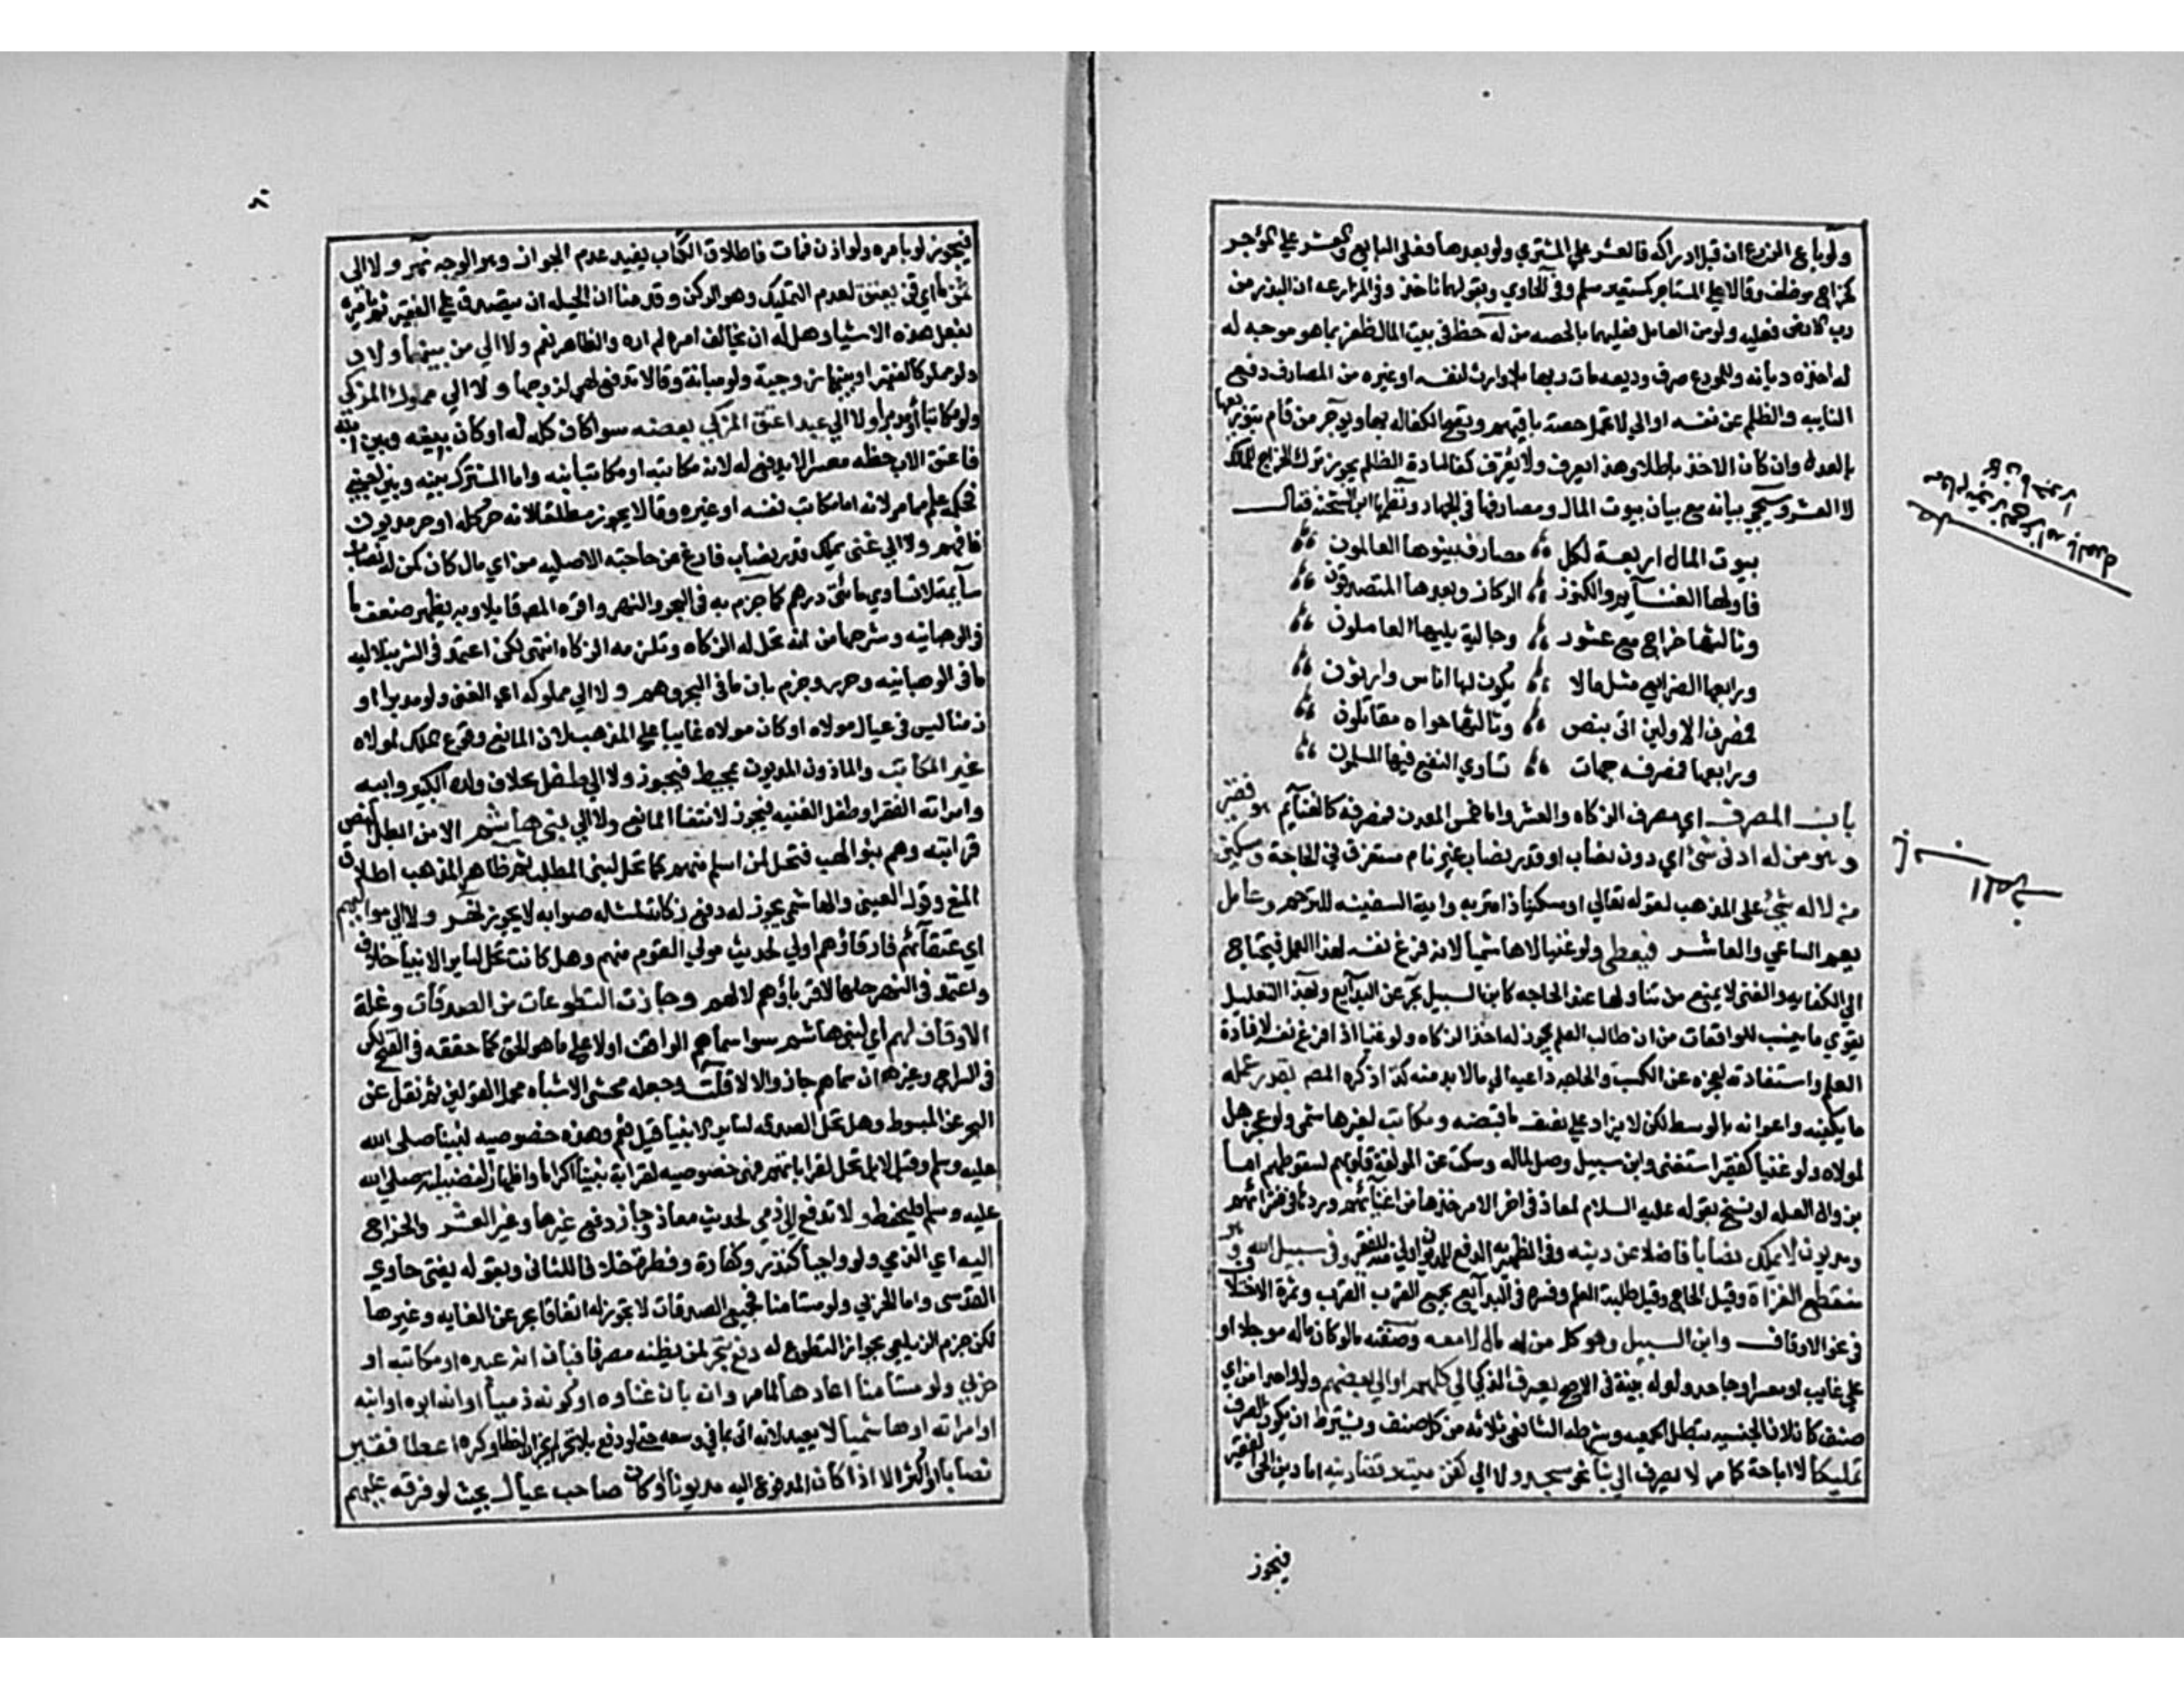 ولو باع الزرع ان قبل ادراكه فالعشر علي المشتري ولو بعده فعلي البايع والعشر علي المؤجر
كخراج موظف وقالا علي المستاجر كمستعير مسلم وفي الحاوي وبقولهما ناخذ وفي المزارعه ان البذر من
رب الارض فعليه ولو من العامل فعليهما بالحصه من له حظ في بيت المال ظفر بما هو موجه له
له اخذه ديانه وللمودع صرف وديعه مات ربها بلا وارث لنفسه او غيره من المصارف دفع
النايبه والظلم عن نفسه اولي الا تحمل حصته باقيهم وتصح الكفاله بها ويوجر من قام بتوزيعها
بالعدل وان كان الاخذ باطلا وهذا يعرف ولا يعرف كفا لمادة الظلم يجوز ترك الخراج للمالك
لا العشر وسيجي بيانه مع بيان بيوت المال ومصارفها في الجهاد ونظمها ابن الشحنه فقال
بيوت المال اربعة لكل ؞ مصارف بينوها العالمون
فاولها الغنايم والكنوز ؞ الركاز وبعدها المتصدقون
وثالثها خراج مع عشور ؞ وجالية يليها العاملون
ورابعها الضوايع مثل مالا ؞ يكون لها اناس وارثون
فمصرف الاولين اتي بنص ؞ وثالثها حواه مقاتلون
ورابعها فمصرفه جهات ؞ تساوي النفع فيها المسلمون
باب المصرف اي مصرف الزكاه والعشر واما خمس المعدن فمصرفه كالغنايم هو فقير
وهو من له ادني شئ اي دون نصاب او قدر نصاب غير نام مستغرق في الحاجة ومسكين
من لا له شئ على المذهب لقوله تعالي او مسكينا ذا متربه واية السفينه للترحم وعامل
يعم الساعي والعاشر فيعطي ولو غنيا لا هاشميا لانه فرغ نفسه لهذا العمل فيحتاج
الي الكفايه والغني لا يمنع من تناولها عند الحاجه كابن السبيل بحر عن البدايع وبهذا التعليل
يقوي ما ينسب للواقعات من ان طالب العلم يجوز له اخذ الزكاه ولو غنيا اذا فرغ نفسه لافادة
العلم واستفادته لعجزه عن الكسب والحاجه داعيه الي ما لا بد منه كذا ذكره المصم بقدر عمله
ما يكفيه واعوانه بالوسط لكن لا يزاد علي نصف ما قبضه ومكاتب لغير هاشمي ولو عجز حل
لمولاه ولو غنيا كفقير استغني وابن سبيل وصل لماله وسكت عن المولفة قلوبهم لسقوطهم اما
بزوال العله او نسخ بقوله عليه السلام لمعاذ في اخر الامر خذها من اغنيائهم وردها في فقرائهم
ومديون لا يملك نصابا فاضلا عن دينه وفي الظهيريه الدفع للمديون اولي منه للفقير وفي سبيل الله وهو
منقطع الغزاة وقيل الحاج وقيل طلبة العلم وفسره في البدايع بجميع القرب وثمرة الاختلاف
في نحو الاوقاف وابن السبيل وهو كل من له مال لا معه ومنه ما لو كان ماله موجلا او
علي غايب او معسر او جاحد ولو له بينة في الاصح يصرف المزكي الي كلهم او الي بعضهم ولو واحدا من اي
صنف كان لان ال الجنسيه تبطل الجمعيه وشرط الشافعي ثلاثه من كل صنف ويشترط ان يكون الصرف
تمليكا لا اباحة كما مر لا يصرف الي بنا نحو مسجد ولا الي كفن ميت وقضا دينه اما دين الحي الفقير
فيجوز
فيجوز لو بامره ولو اذن فمات فاطلاق الكتاب يفيد عدم الجواز وهو الوجه نهر ولا الي
ثمن ما اي قن يعتق لعدم التمليك وهو الركن وقدمنا ان الحيله ان يتصدق علي الفقير ثم يامره
بفعل هذه الاشياء وهل له ان يخالف امره لم اره والظاهر نعم ولا الي من بينهما ولاد
ولو مملوكا لفقير او بينهما زوجية ولو مبانة وقالا تدفع هي لزوجها ولا الي مملوك المزكي
ولو مكاتبا او مدبرا ولا الي عبد اعتق المزكي بعضه سوا كان كله له او كان بينه وبين ابنه
فاعتق الاب حظه معسرا لا يدفع له لانه مكاتبه او مكاتب ابنه واما المشترك بينه وبين اجنبي
فحكمه علم مما مر لانه اما مكاتب نفسه او غيره وقالا يجوز مطلقا لانه حر كله او حر مديون
فافهم ولا الي غني يملك قدر نصاب فارغ عن حاجته الاصليه من اي مال كان كمن له نصاب
سايمة لا تساوي مائتي درهم كما جزم به في البحر والنهر واقره المصم قايلا وبه يظهر ضعف ما
في الوهبانيه وشرحها من انه تحل له الزكاه وتلزمه الزكاه انتهى لكن اعتمد في الشرنبلاليه
ما في الوهبانيه وحرر وجزم بان ما في البحر وهم ولا الي مملوكه اي الغني ولو مدبرا او
زمنا ليس في عيال مولاه او كان مولاه غايبا علي المذهب لان المانع وقوع الملك لمولاه
غير المكاتب والماذون المديون بمحيط فيجوز ولا الي طفله بخلاف ولده الكبير وابيه
وامراته الفقرا وطفل الغنيه فيجوز لانتفا المانع ولا الي بني هاشم الا من ابطل النص
قرابته وهم بنو لهب فتحل لمن اسلم منهم كما تحل لبني المطلب ثم ظاهر المذهب اطلاق
المنع وقول العيني والهاشمي يجوز له دفع زكاته لمثله صوابه لا يجوز نهر ولا الي مواليهم
اي عتقائهم فارقاؤهم اولي لحديث مولي القوم منهم وهل كانت تحل لساير الانبيا خلاف
واعتمد في النهر حلها لاقربائهم لا لهم وجازت التطوعات من الصدقات وغلة
الاوقاف لهم اي لبني هاشم سوا سماهم الواقف اولا علي ما هو الحق كما حققه في الفتح لكن
في السراج وغيره ان سماهم جاز والا لا قلت وجعله محشي الاشباه محمل القولين ثم نقل عن
البحر عن المبسوط وهل تحل الصدقه لساير الانبيا قيل نعم وهذه خصوصيه لنبينا صلى الله
عليه وسلم وقيل لا بل تحل لقراباتهم فهي خصوصيه لقرابة نبينا اكراما واظهارا لفضيلته صلى الله
عليه وسلم فليحفظ ولا تدفع الي ذمي لحديث معاذ وجاز دفع غيرها وغير العشر والخراج
اليه اي الذمي ولو واجبا كنذر وكفارة وفطرة خلافا للثاني وبقوله يفتى حاوي
القدسي واما الحربي ولو مستامنا فجميع الصدقات لا تجوز له اتفاقا بحر عن الغايه وغيرها
لكن جزم الزيلعي بجواز التطوع له دفع بتحر لمن يظنه مصرفا فبان انه عبده او مكاتبه او
حربي ولو مستامنا اعادها لما مر وان بان غناوه او كونه ذميا او انه ابوه او ابنه
او امراته او هاشميا لا يعيد لانه اتى بما في وسعه حتي لو دفع بلا تحر لم يجز ان اخطا وكره اعطا فقير
نصابا او اكثر الا اذا كان المدفوع اليه مديونا او كان صاحب عيال بحيث لو فرقه عليهم